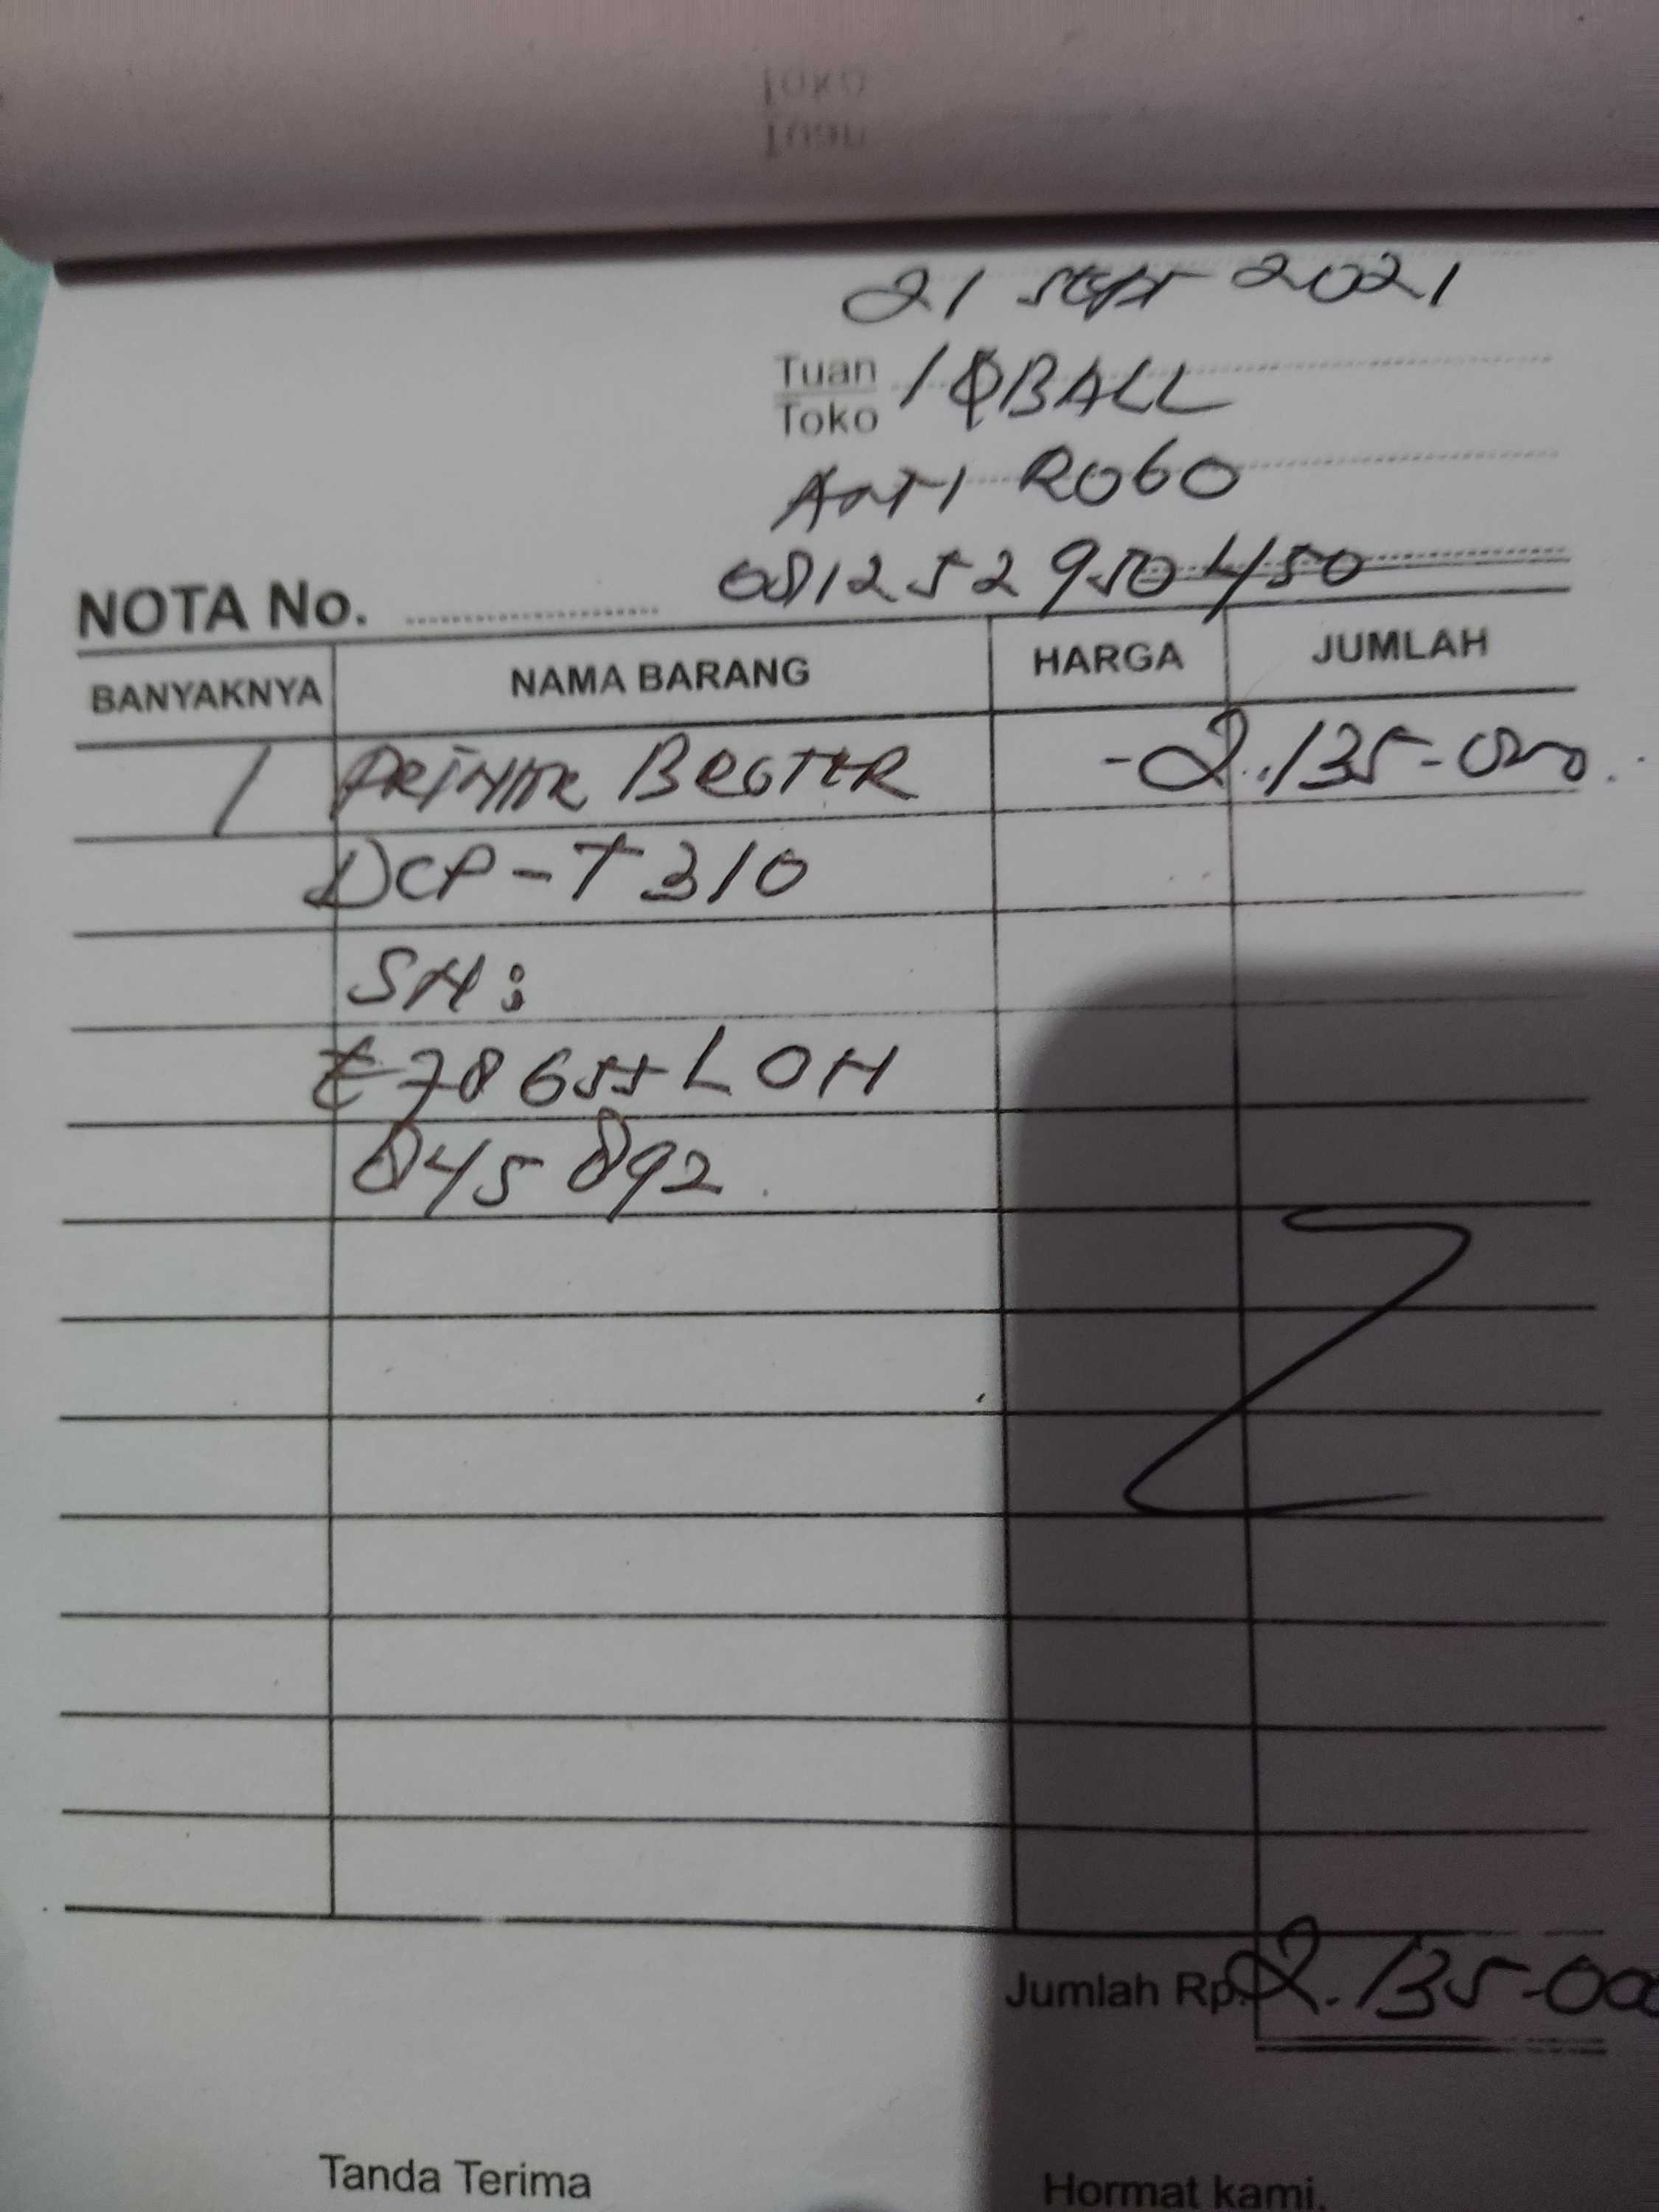 21 Sept 2021
Tuan
Toko
IQBALL
ANTI ROGO
081252950450
NOTA No.
BANYAKNYA NAMA BARANG HARGA JUMLAH
1 PRINTER BROTER -2.135-000.
DCP-T310
SN:
E78655L0H
845892.
Jumlah Rp. 2.135-000
Tanda Terima
Hormat kami.